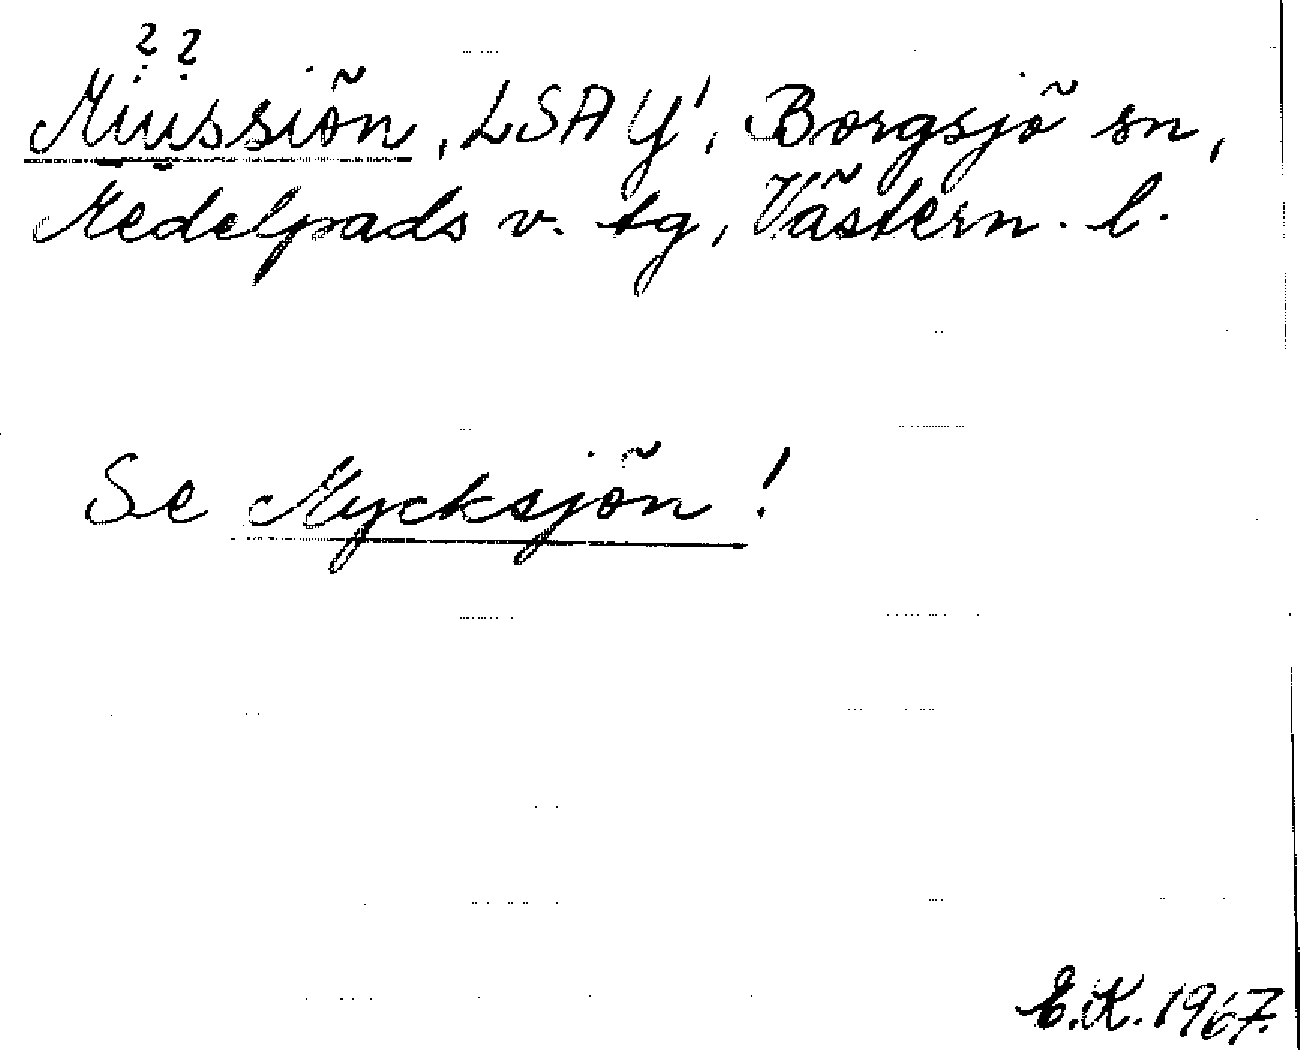 ? ?
Miussiön, LSA Y¹, Borgsjö sn,
Medelpads v. tg, Västern. l.
Se Mycksjön!
E.K. 1967.